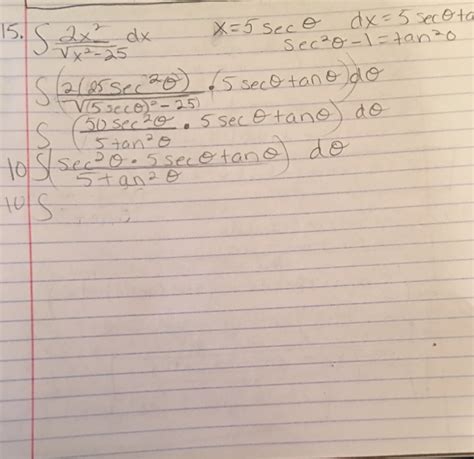 15. ∫ 2x²/√(x²-25) dx   x=5 sec θ   dx=5 secθta
sec²θ-1=tan²θ
∫ (2(25sec²θ)/√((5secθ)²-25) · 5secθtanθ)dθ
∫ (50sec²θ/5tan²θ · 5secθtanθ) dθ
10 ∫ (sec²θ · 5secθtanθ/5tan²θ) dθ
10 ∫